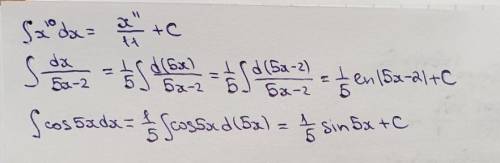 ∫x¹⁰dx = x¹¹/11 + C
∫ dx/(5x-2) = 1/5 ∫ d(5x)/(5x-2) = 1/5 ∫ d(5x-2)/(5x-2) = 1/5 ln|5x-2| + C
∫cos5xdx = 1/5 ∫cos5xd(5x) = 1/5 sin5x + C